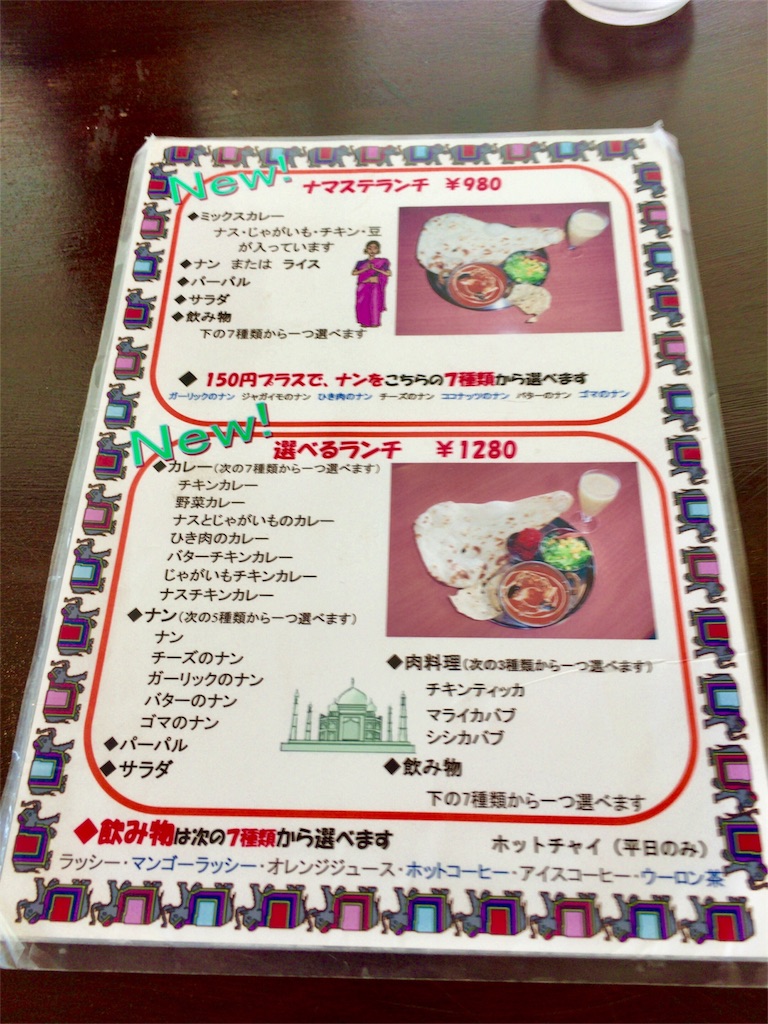 New!
ナマステランチ ￥980
◆ミックスカレー
ナス・じゃがいも・チキン・豆
が入っています
◆ナン または ライス
◆パーパル
◆サラダ
◆飲み物
下の7種類から一つ選べます
◆ 150円プラスで、ナンをこちらの7種類から選べます
ガーリックのナン ジャガイモのナン ひき肉のナン チーズのナン ココナッツのナン バターのナン ゴマのナン
New!
選べるランチ ￥1280
◆カレー(次の7種類から一つ選べます)
チキンカレー
野菜カレー
ナスとじゃがいものカレー
ひき肉のカレー
バターチキンカレー
じゃがいもチキンカレー
ナスチキンカレー
◆ナン(次の5種類から一つ選べます)
ナン
チーズのナン
ガーリックのナン
バターのナン
ゴマのナン
◆パーパル
◆サラダ
◆肉料理(次の3種類から一つ選べます)
チキンティッカ
マライカバブ
シシカバブ
◆飲み物
下の7種類から一つ選べます
◆飲み物は次の7種類から選べます
ホットチャイ（平日のみ）
ラッシー・マンゴーラッシー・オレンジジュース・ホットコーヒー・アイスコーヒー・ウーロン茶